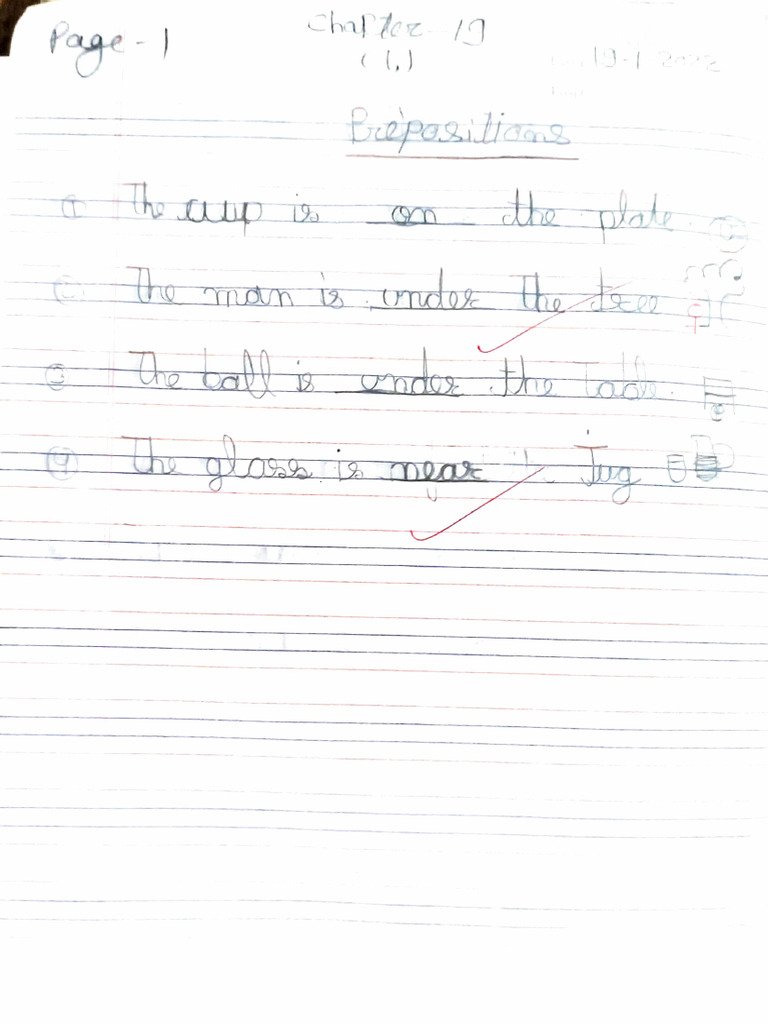 Page - 1
Chapter - 19
(1.)
19-1-2022
Prepositions
① The cup is on the plate.
The man is under the tree
③ The ball is under the Table.
④ The glass is near Jug